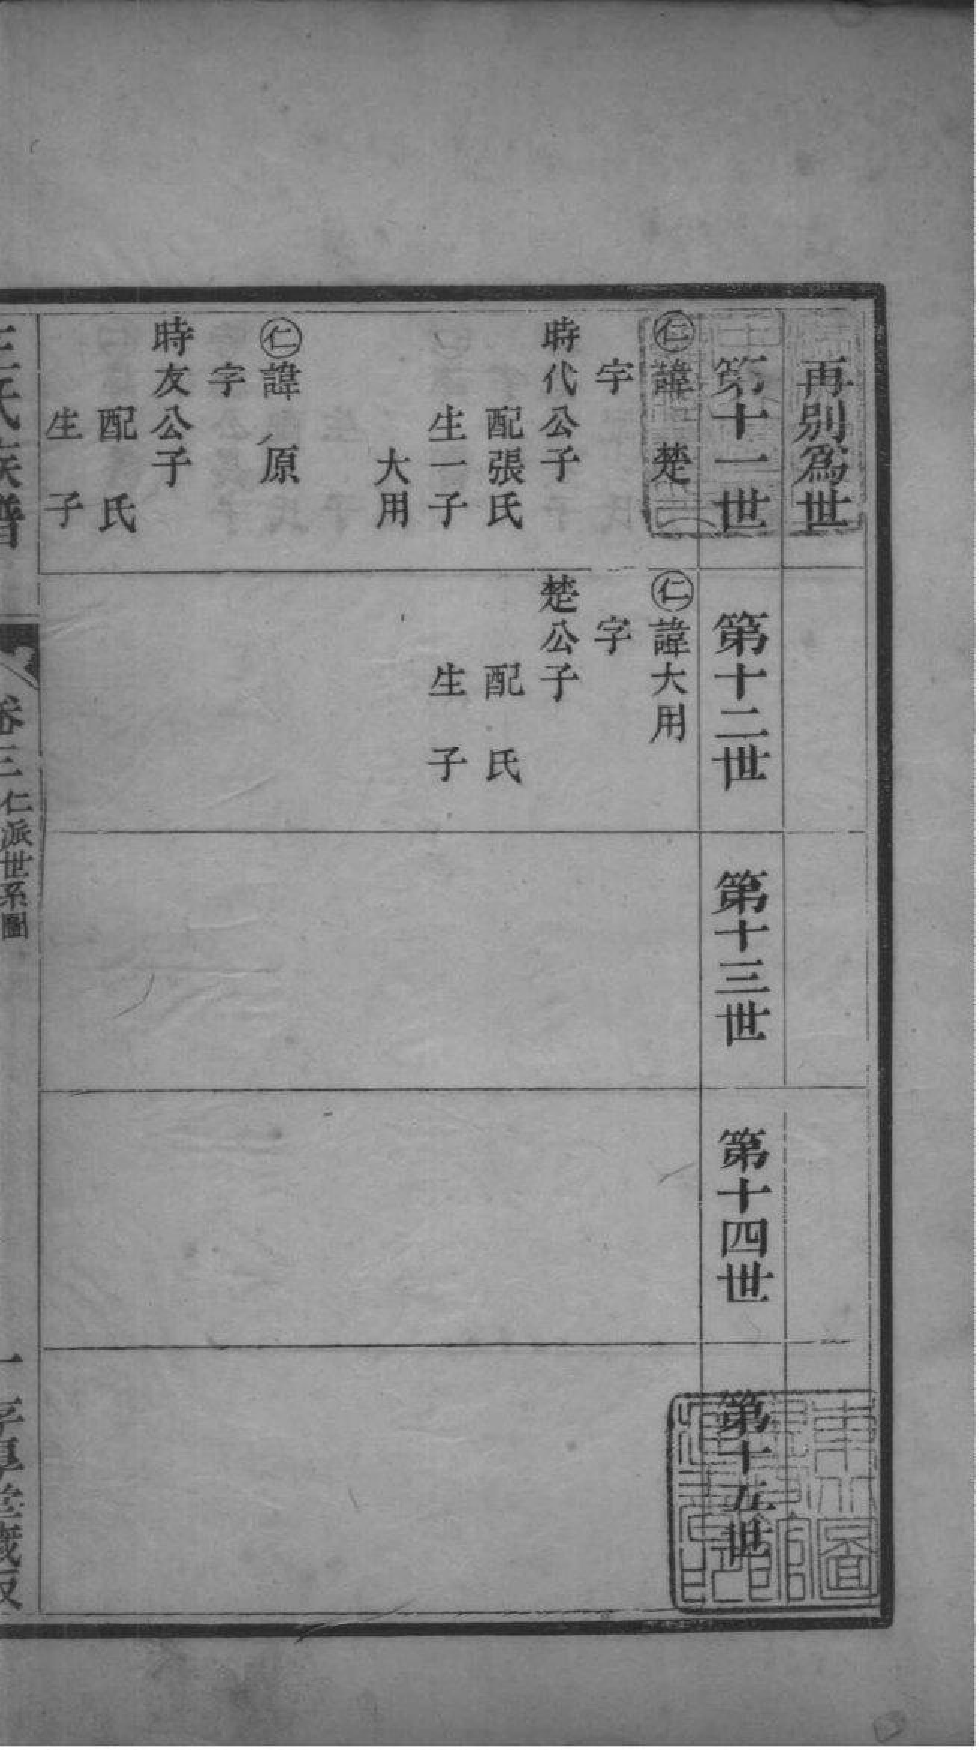 再别爲世
第十一世
仁諱 楚
字
時代公子
配張氏
生一子
大用
仁諱 原
字
時友公子
配 氏
生 子
第十二世
仁諱大用
字
楚公子
配 氏
生 子
第十三世
第十四世
第十五世
王氏族譜
卷三 仁派世系圖
一